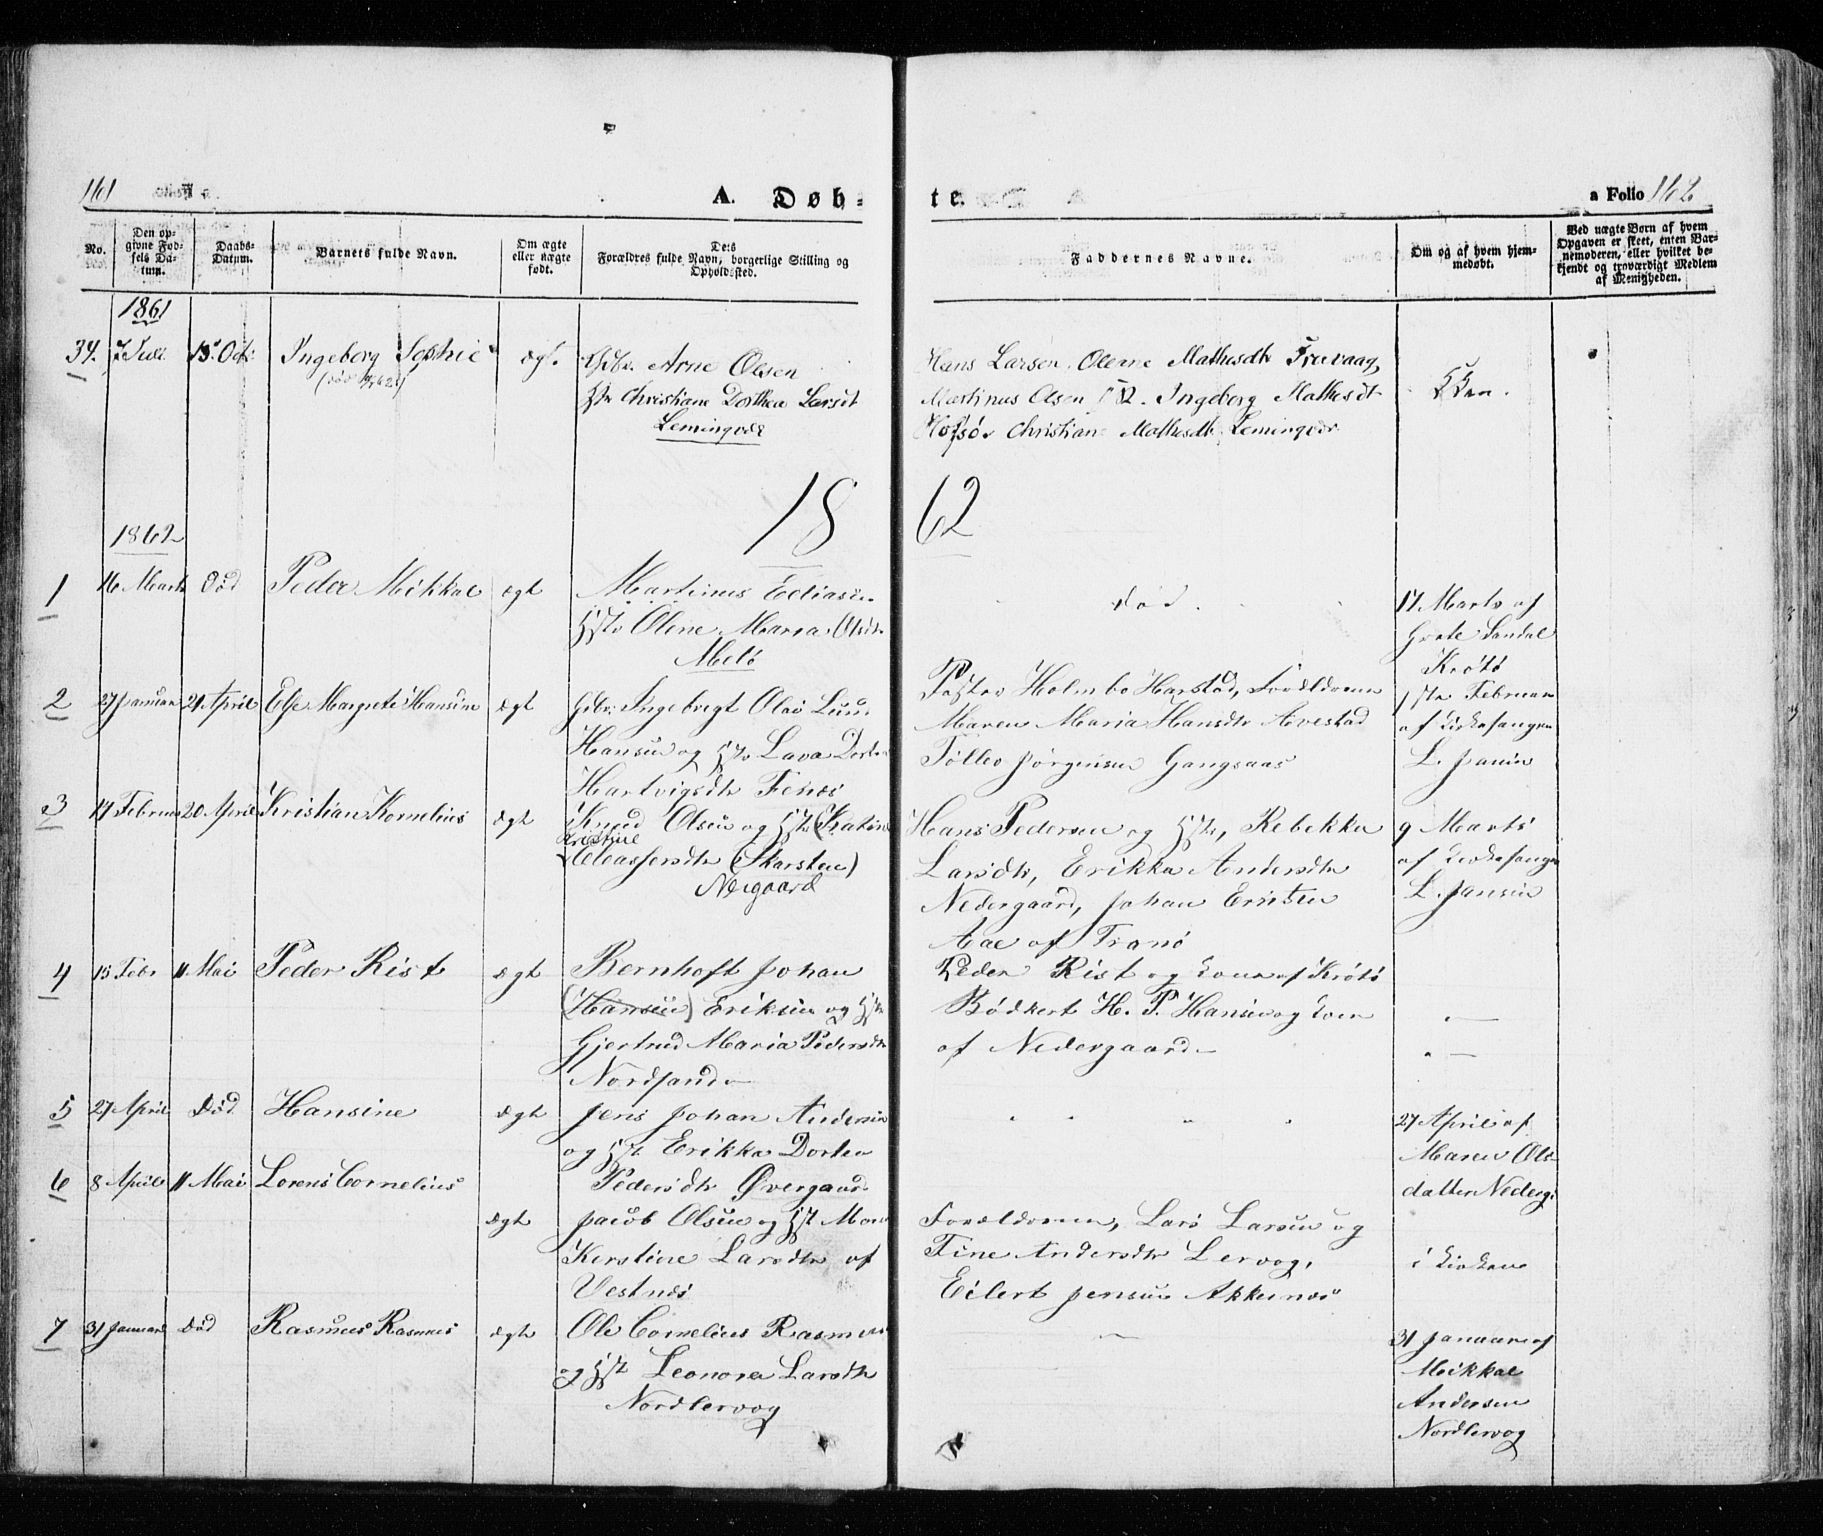 161
A. Døb-
te.
a Folio 162
No.
Den op-
givne Fød-
sels Da-
tum.
Daabs-
Datum.
Barnets fulde Navn.
Om ægte
eller uægte
født.
Dets
Forældres fulde Navn, borgerlige Stilling og
Opholdssted.
Faddernes Navne.
Om og af hvem hjem-
medøbt.
Ved uægte Børn af hvem
Opgaven er skeet, enten Bar-
nemoderen, eller hvilket be-
kjendt og troværdigt Medlem
af Menigheden.
1861
34. 7 Juli 13 Oct. Ingeborg Sophie ægt. Arne Olsen
Christiane Dorthea Larsdt
Lemingvær
Hans Larsen, Olene Mathesdtr
Martinus Olsen Ingeborg Mathesdt
Hofsø Christian Mathesdtr Lemingvær
18 62
1862
1 16 Marts Død Peder Mikkal ægt Martinus Eliasen
Hstr Olene Maria Olsdtr
Melø
Død.
17 Marts af
Grete Sandal
Krøtø
2 27 Januar 21 April Else Margrete Hansine ægt Ingebrigt Olai Lund
Hansen og Hstr Lava Dortea
Hartvigsdtr Finnes
Pastor Holmbo Harstad, Forældrene
Maren Maria Hansdtr Avestad
Tølløv Jørgensen Gangsaas
1ste Februar
af Kirkesangeren
L. Jansen
3 14 Februar 20 April Kristian Kornelius ægt Knud Olsen og Hstr (Katrine
Kristine
Eleassersdtr (Skarsten)
Nergaard
Hans Pedersen og Hstr, Rebekka
Larsdtr, Erikka Andersdtr
Nedergaard, Johan
Aae af Tranø
9 Marts
af Kirkesanger
L. Jansen
4 15 Febr 11 Mai Peder Rist ægt Bernhoft Johan
(Hansen) Eriksen og Hstr
Gjertrud Maria Pedersdtr
Nordsand
Peder Rist og Kone af Krøtø
Bødkert H. P. Hansen og Kone
af Nedergaard
5 27 April Død Hansine ægt Jens Johan Andersen
og Hstr Erikka Dortea
Pedersdtr Øvergaard
27 April af
Maren Ols
datter Nederg:
6 8 April 11 Mai Lorens Cornelius
ægt Jacob Olsen og Hst Maren
Kerstine Larsdtr af
Vestnes
Forældrene, Lars Larsen og
Tine Andersdtr Lervog,
Eilert Jensen Akkernes
i Kirken
7 31 Januar Død Rasmus Rasmus ægte Ole Cornelius Rasmus
og Hstr Leonora Larsdtr
Nordlervog
31 Januar af
Mikkal
Andersen
Nordlervog